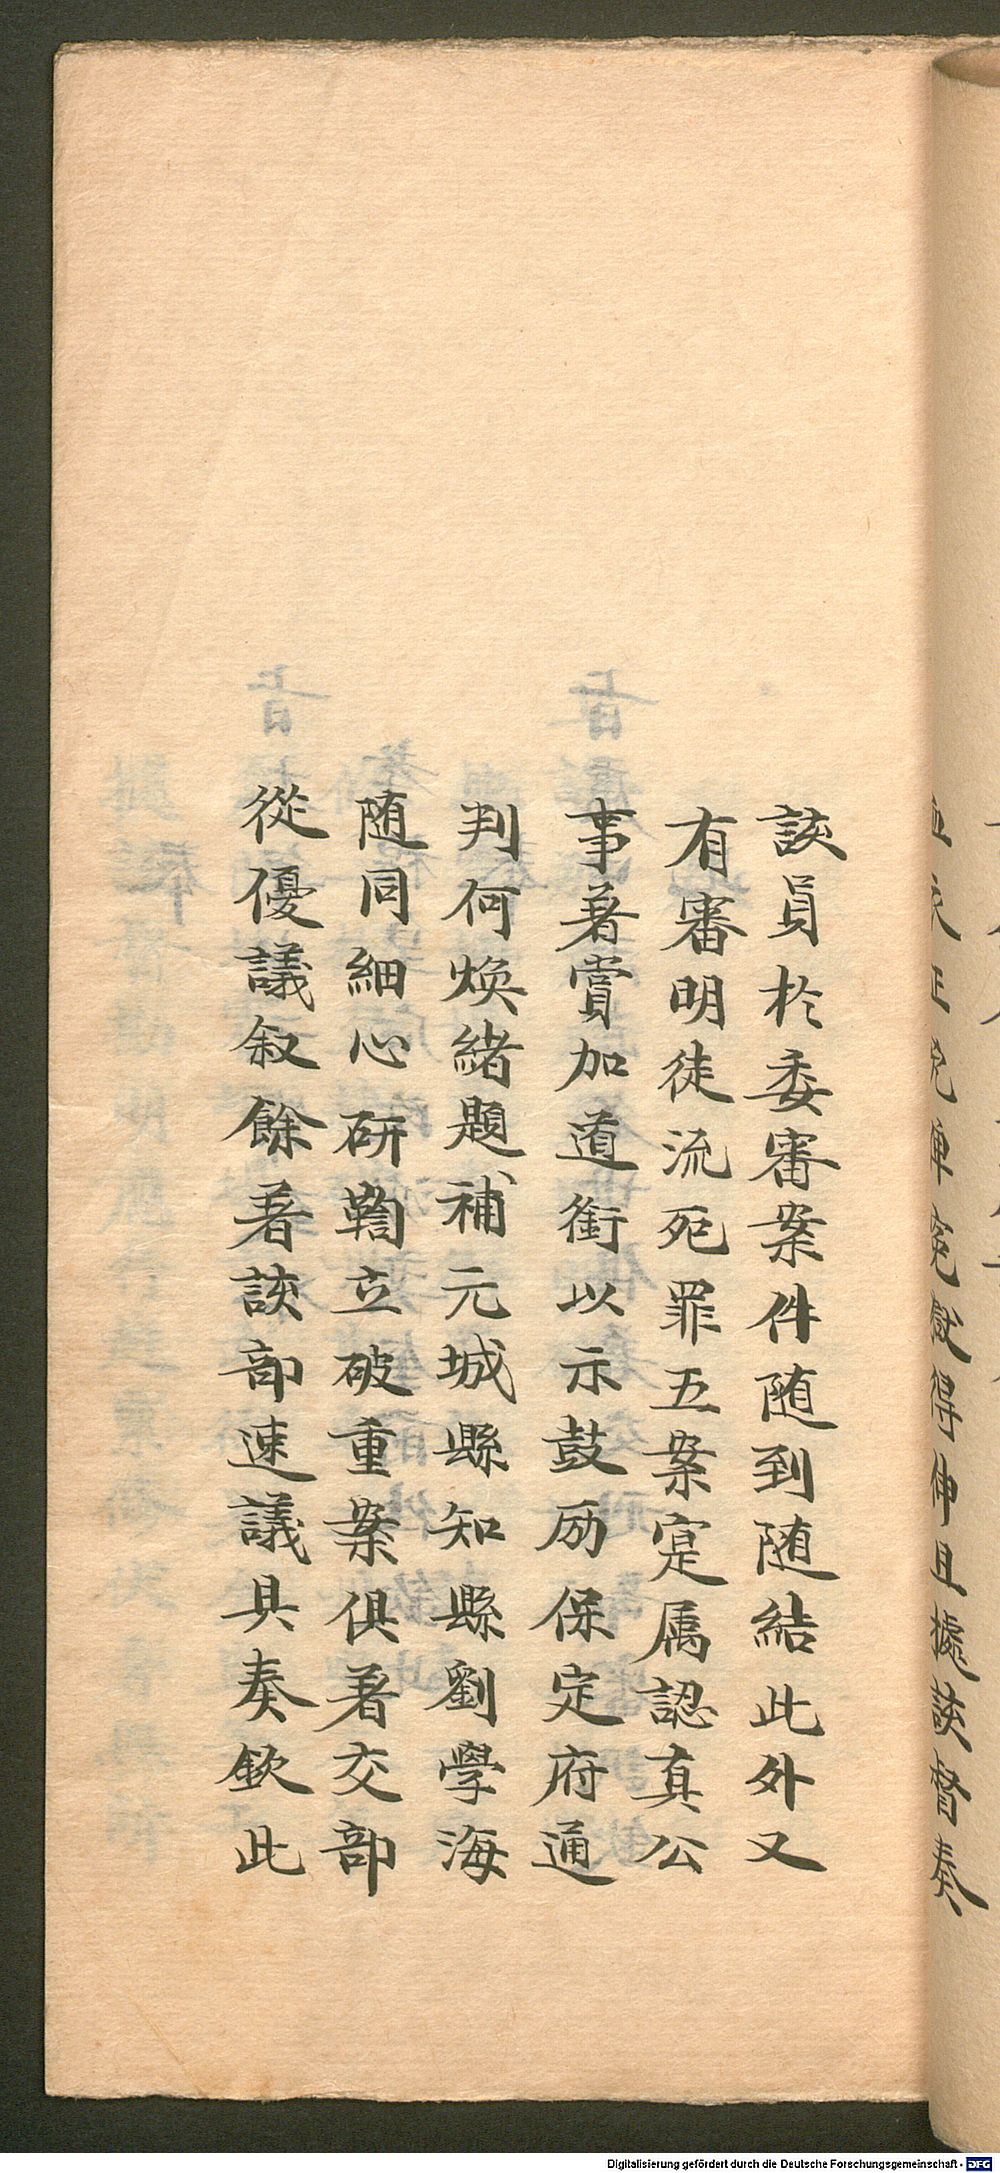 並究正兇俾寃獄得伸且據該督奏
該員於委審案件随到随結此外又
有審明徒流死罪五案寔属認真公
事著賞加道銜以示鼓励保定府通
判何煥緒題補元城縣知縣劉學海
随同細心研鞫立破重案俱著交部
從優議叙餘著該部速議具奏欽此
Digitalisierung gefördert durch die Deutsche Forschungsgemeinschaft - DFG